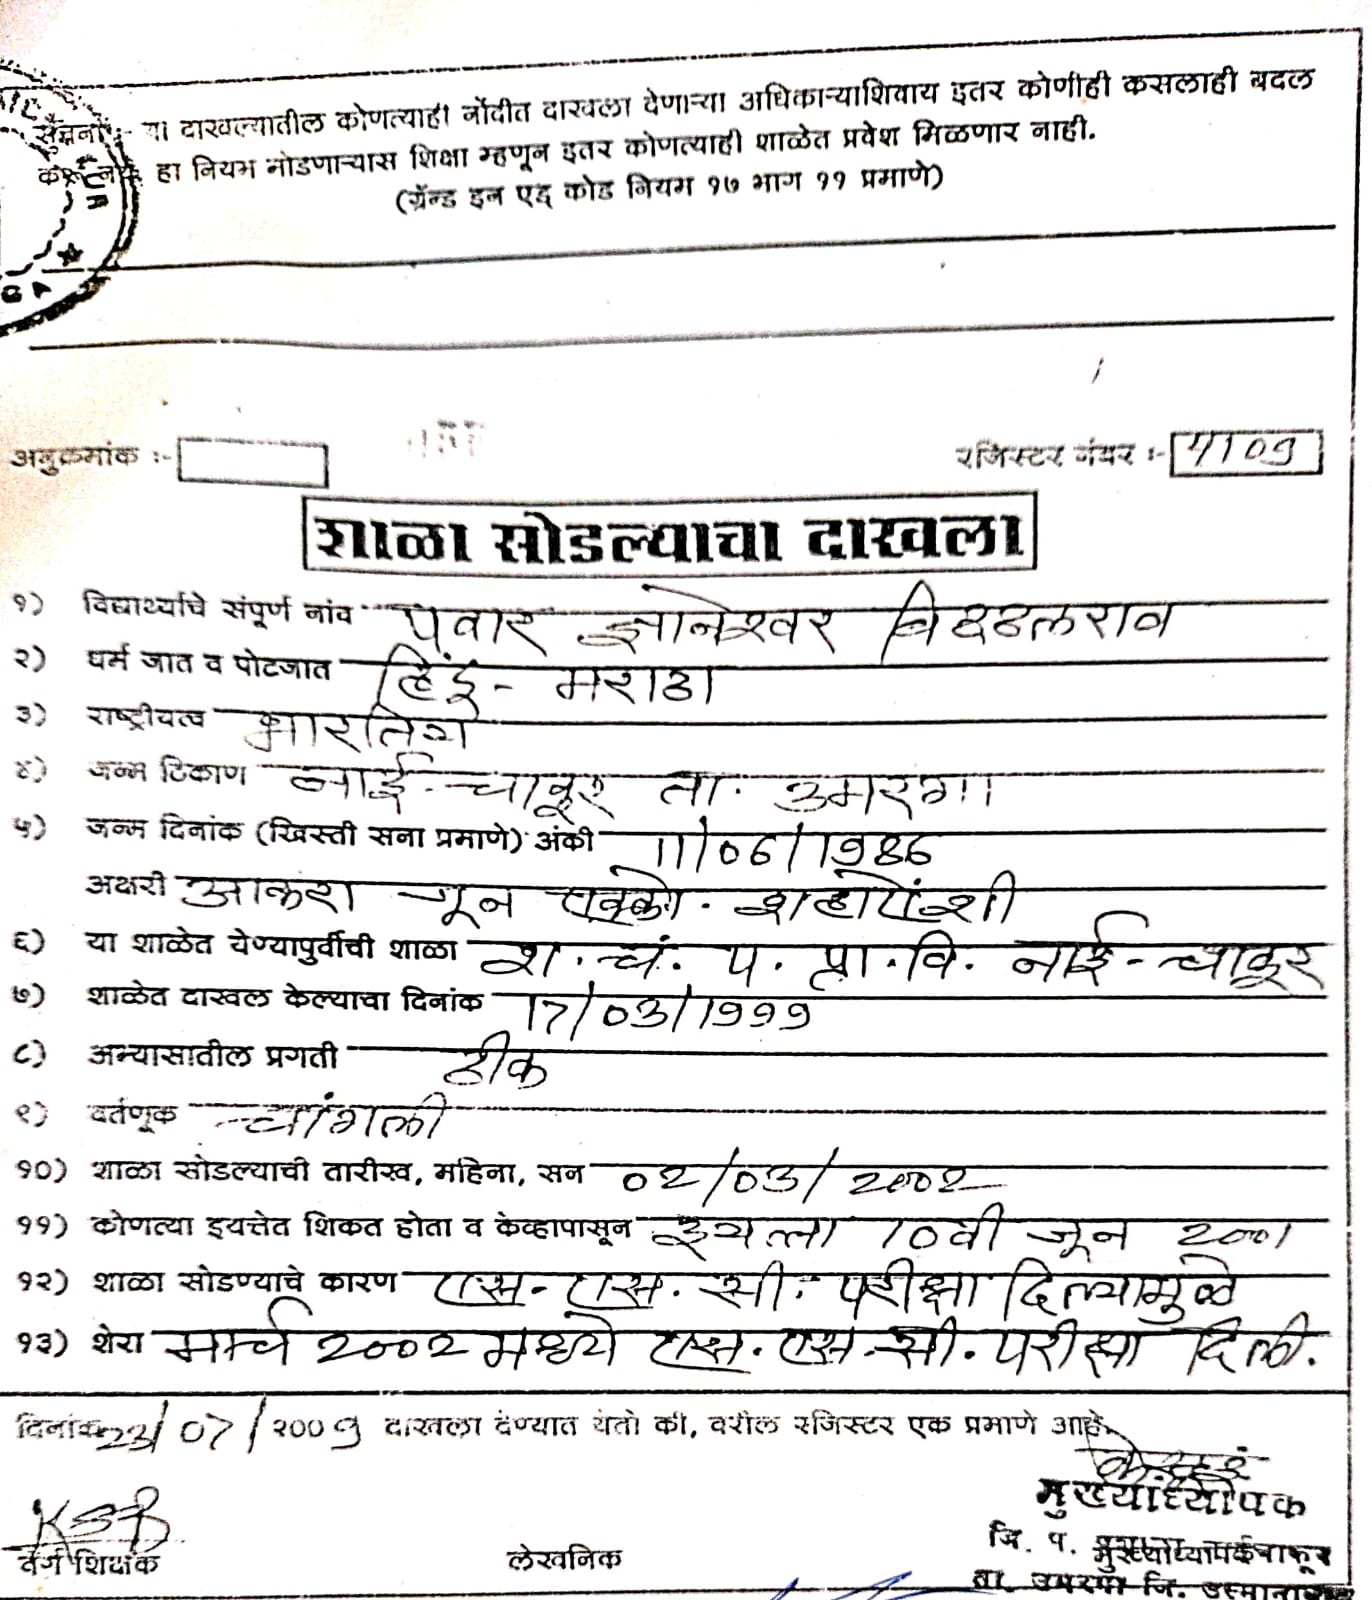 सुचना :- या दाखल्यातील कोणत्याही नोंदीत दाखला देणाऱ्या अधिकाऱ्याशिवाय इतर कोणीही कसलाही बदल
करू नये हा नियम मोडणाऱ्यास शिक्षा म्हणून इतर कोणत्याही शाळेत प्रवेश मिळणार नाही.
(ग्रॅन्ड इन एड् कोड नियम १७ भाग ११ प्रमाणे)
अनुक्रमांक :-
रजिस्टर नंबर :-
शाळा सोडल्याचा दाखला
१) विद्यार्थ्याचे संपूर्ण नांव पवार ज्ञानेश्वर विठ्ठलराव
२) धर्म जात व पोटजात हिंदू - मराठा
३) राष्ट्रीयत्व भारतिय
४) जन्म ठिकाण नाई-चाकूर ता. उमरगा
५) जन्म दिनांक (ख्रिस्ती सना प्रमाणे) अंकी 11/06/1986
अक्षरी आकरा जून एक्को. शहाऐंशी
६) या शाळेत येण्यापुर्वीची शाळा श. चं. प. प्रा. वि. नाई-चाकूर
७) शाळेत दाखल केल्याचा दिनांक 17/03/1999
८) अभ्यासातील प्रगती ठीक
९) वर्तणूक चांगली
१०) शाळा सोडल्याची तारीख, महिना, सन 02/03/2002
११) कोणत्या इयत्तेत शिकत होता व केंव्हापासून इयत्ता 10वी जून 2001
१२) शाळा सोडण्याचे कारण एस. एस. सी. परीक्षा दिल्यामुळे
१३) शेरा मार्च 2002 मध्ये एस. एस. सी. परीक्षा दिली.
दिनांक 23/07/२००9 दाखला देण्यात येतो की, वरील रजिस्टर एक प्रमाणे आहे.
मुख्याध्यापक
वर्ग शिक्षक
लेखनिक
जि. प.
मुख्याध्यापक
ता. उमरगा जि. उस्मानाबाद